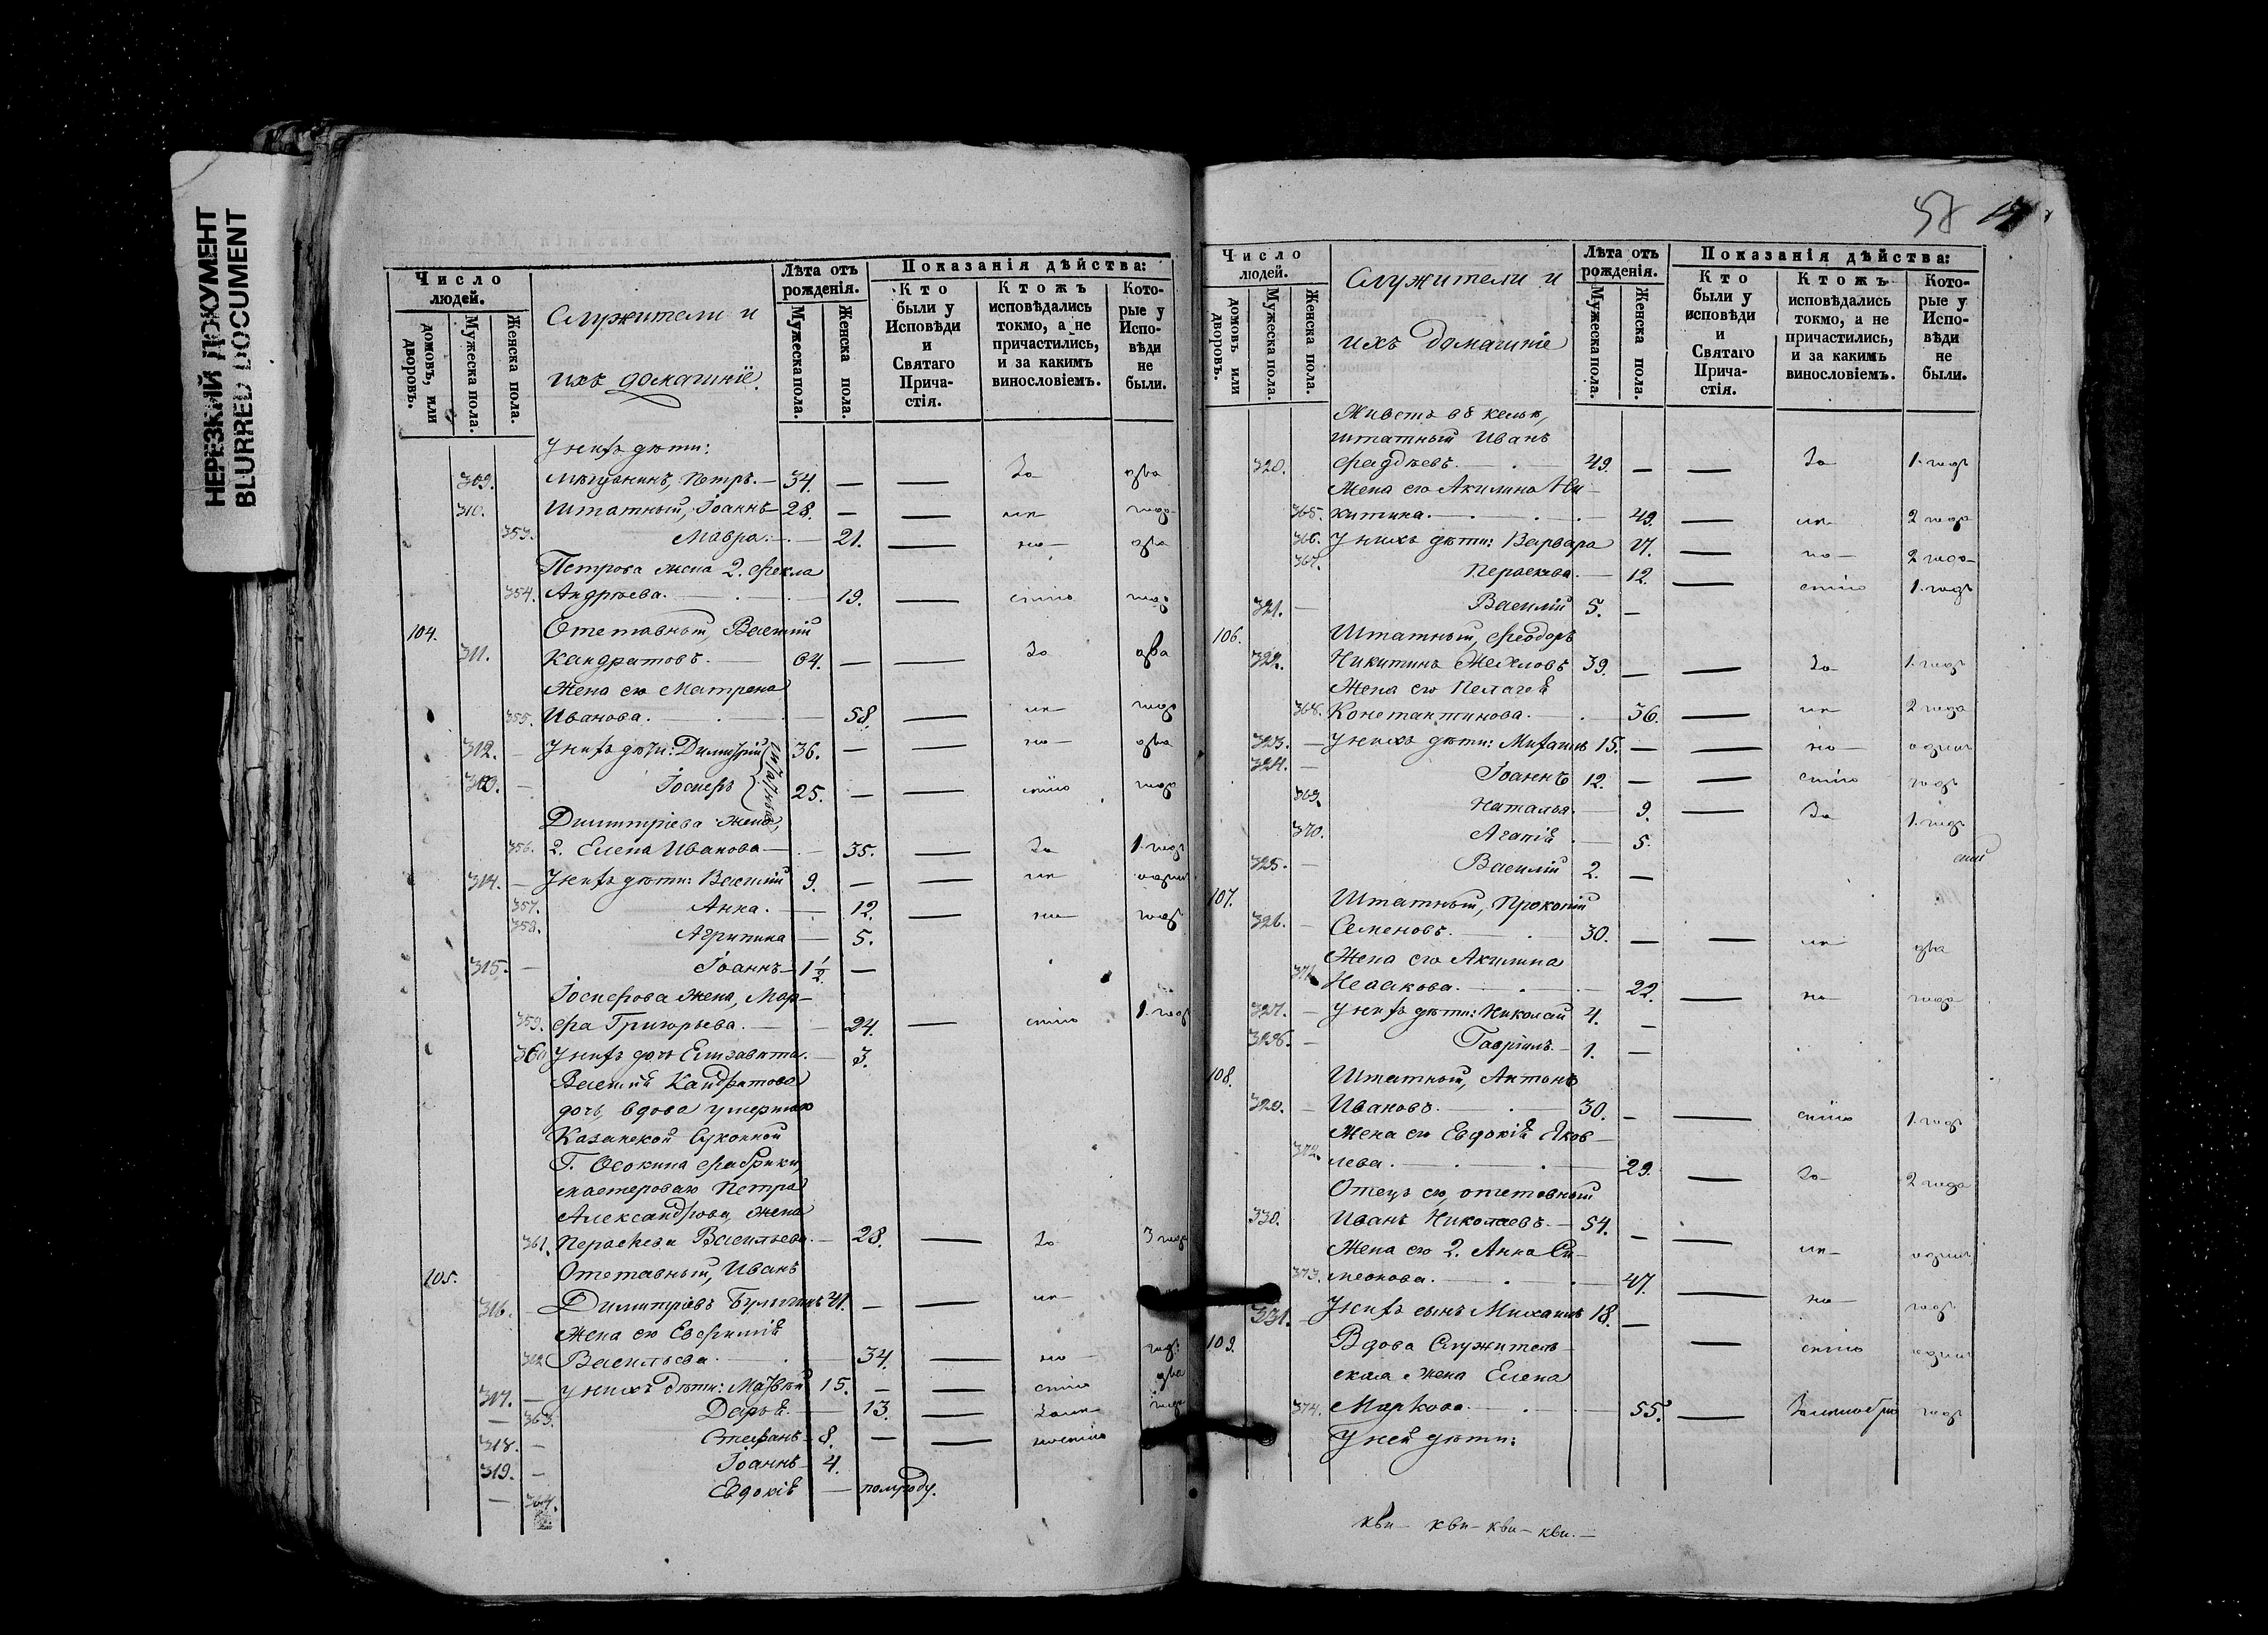 НЕРЕЗКИЙ ДОКУМЕНТ
BLURRED DOCUMENT
Число людей.
домовъ, или дворовъ.
Мужеска пола.
Женска пола.
Служители и
ихъ домашніе.
Лѣта отъ рожденія.
Мужеска пола.
Женска пола.
Показанія дѣйства:
Кто были у Исповѣди и Святаго Причастія.
Ктожъ исповѣдались токмо, а не причастились, и за какимъ винословіемъ.
Которые у Исповѣди не были.
У нихъ дѣти:
309. Мѣщанинъ, Петръ. — 34. — — За два
310. Штатный, Іоаннъ — 28. — — года
353. Мавра. — 21. — но— два
Петрова жена 2. Фекла
354. Андрѣева. — 19. — года
104. Отставный, Василій
311. Кандратовъ. — 64. — — За два
Жена его Матрена
355. Иванова. — 58. — года
312. — У нихъ дѣти: Димитрій 36. — — но— два
313. — Іосифъ 25. — — года
Штатные
Димитріева жена,
356. 2. Елена Иванова — 35. — За 1. годъ
314. — У нихъ дѣти: Василій 9. — — одинъ
357. Анна. — 12. — но— годъ
358. Агрипина — 5.
315. — Іоаннъ — 1 1/2. —
Іосифова жена, Мар—
359. фа Григорьева. — 24. — 1. годъ
360 У нихъ дочь Елизавета. — 3.
Василія Кандратова
дочь, вдова умершаго
Казанской Суконной
Г. Осокина фабрики,
мастероваго Петра
Александрова, жена
361. Параскева Васильева. — 28. — За 3 года
105. Отставный, Иванъ
316. — Димитріевъ Булыгинъ 41. — —
Жена его Евфимія
362 Васильева. — 34. — но годъ.
317. — У нихъ дѣти: Матвѣй 15. — — два
— 363. Дарья. — 13. — года
318. — Стефанъ — 8. — —
319. — Іоаннъ — 4.
— 364. Евдокія — полгоду.
58
Число людей.
домовъ или дворовъ.
Мужеска пола.
Женска пола.
Служители и
ихъ домашніе
Лѣта отъ рожденія.
Мужеска пола.
Женска пола.
Показанія дѣйства:
Кто были у исповѣди и Святаго Причастія.
Ктожъ исповѣдались токмо, а не причастились, и за какимъ винословіемъ.
Которые у Исповѣди не были.
Живетъ въ кельѣ,
штатный Иванъ
320. Фадѣевъ. — 49. — — За 1. годъ
Жена его Акилина Ни—
365. китина. — 49. — 2 года
366. У нихъ дѣти: Варвара 17. — но— 2 года—
367. Параскева. — 12. — 1. годъ
321. — Василій 5. —
106. Штатный, Феодоръ
322. Никитинъ 39. — — За 1. годъ
Жена его Пелагея
368. Константинова. — 36. — 2 года
323. — У нихъ дѣти: Михаилъ 15. — — но— одинъ
324. — Іоаннъ 12. — — годъ
369. Наталья. — 9. — За 1. годъ
370. Агапія — 5.
325. — Василій 2. —
107. Штатный, Прокопій
326. — Семеновъ. — 30. — — два
Жена его Акилина
371. Исаакова. — 22. — но— года
327. — У нихъ дѣти: Николай 4. —
328. — Гавріилъ. — 1. —
108. Штатный, Антонъ
329. — Ивановъ. — 30. — — 1. годъ
Жена его Евдокія Яков—
372. лева. — 29. — За— 2 года
Отецъ его, отставный
330. Иванъ Николаевъ. — 54. — —
Жена его 2. Анна Си—
373. меонова. — 47. — но—
331. — У нихъ сынъ Михаилъ 18. — —
109. Вдова Служитель—
ская жена Елена
374. Маркова. — 55. — годъ
У ней дѣти: